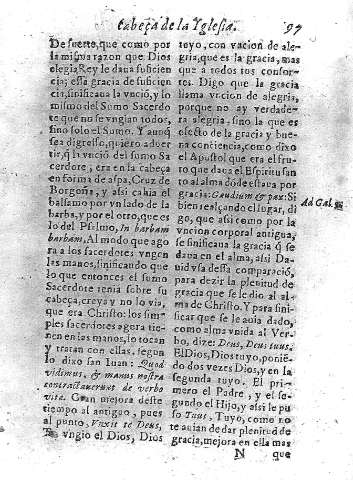 Cabeça de la Yglesia. 97
De suerte, que como por
la misma razon que Dios
elegia Rey le daua suficien
cia; essa gracia de suficien
cia, sinificaua la vnció, y lo
mismo del Sumo Sacerdo
te que no se vngian todos,
sino solo el Sumo. Y aunq̃
sea digressió, quiero aduer
tir, q̃ la vnció del sumo Sa
cerdote, era en la cabeça
en forma de aspa, Cruz de
Borgoña, y assi cahia el
balsamo por vn lado de la
barba, y por el otro, que es
lo del Psalmo, In barbam
barbam, Al modo que ago
ra a los sacerdotes vngen
las manos, sinificando que
lo que entonces el sumo
Sacerdote tenia sobre su
cabeça, creya y no lo via,
que era Christo: los sim-
ples sacerdotes agora tie-
nen en las manos, lo tocan
y tratan con ellas. segun
lo dixo san Iuan: Quod
vidimus, & manus nostræ
contrectauerunt de verbo
vitæ. Gran mejora deste
tiempo al antiguo, pues
al punto, Vnxit te Deus,
Te vngio el Dios, Dios
tuyo, con vncion de ale-
gria, que es la gracia, mas
que a todos tus consor-
tes. Digo que la gracia
llama vncion de alegria,
porque no ay verdade-
ra alegria, sino la que es
efecto de la gracia y bue-
na conciencia, como dixo
el Apostol que era el fru-
to que daua el Espiritu san
to al alma dóde estaua por
gracia: Gaudium & pax: Si
bien calçando el lugar, di
go, que assi como por la
vncion corporal antigua,
se sinificaua la gracia q̃ se
daua en el alma, assi Da
uid vsa dessa comparació,
para dezir la plenitud de
gracia que se le dio al al-
ma de Christo. Y para sinifi
car que se le auia dado,
como alma vnida al Ver-
bo, dize: Deus, Deus tuus.
El Dios, Dios tuyo, ponié-
do dos vezes Dios, y en la
segunda tuyo. El pri-
mero el Padre, y el se-
gundo el Hijo, y assi le pu
so Tuus, Tuyo, como no
te auian de dar plenitud de
gracia, mejora en ella mas
Ad Gal.
N que